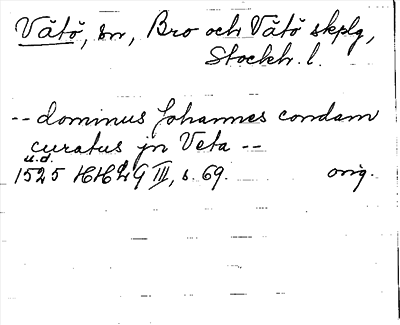 Vätö, sn, Bro och Vätö skplg,
Stockh. l.
-- dominus Johannes condam
curatus jn Veta --
u.d.
1525 HH G III, s. 69. orig.